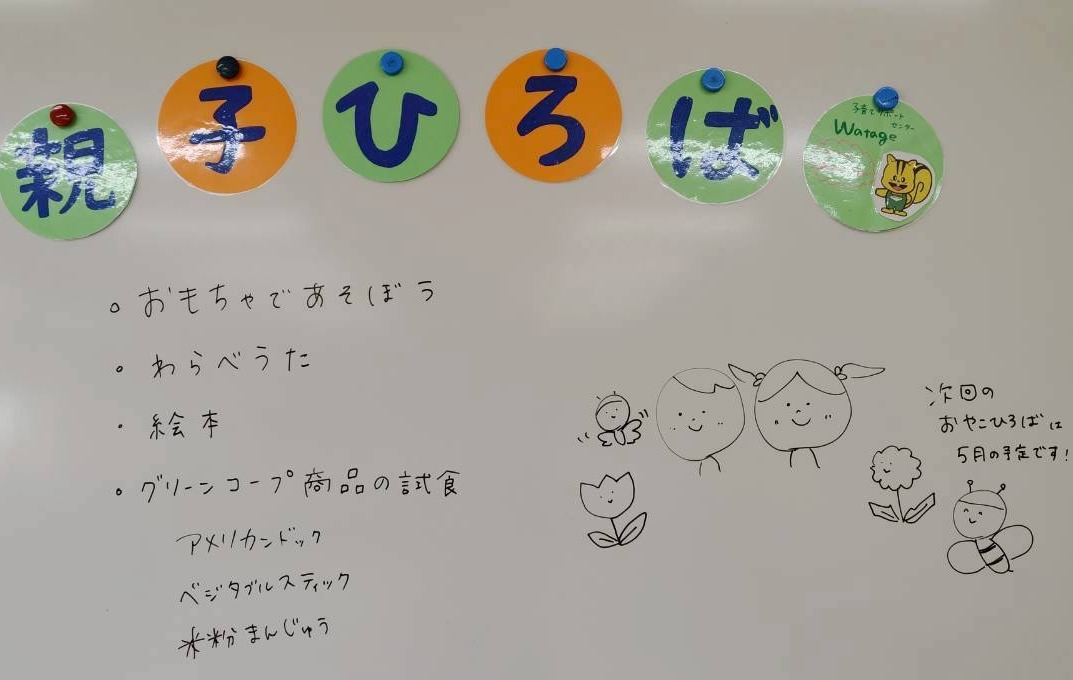 親子ひろば
子育てサポート
センター
Watage
おもちゃであそぼう
わらべうた
絵本
グリーンコープ商品の試食
アメリカンドック
ベジタブルスティック
米粉まんじゅう
次回の
おやこひろばは
5月の予定です!